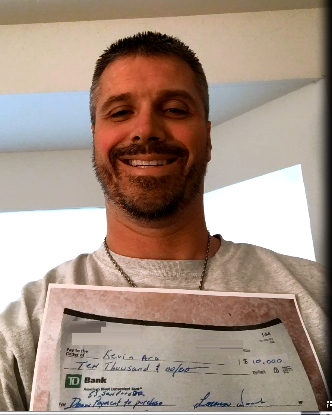 144
Pay to the
Order of Kevin Aro
Ten Thousand & 00/00 $ 10,000
TD Bank
America's Most Convenient Bank®
Down Payment to purchase